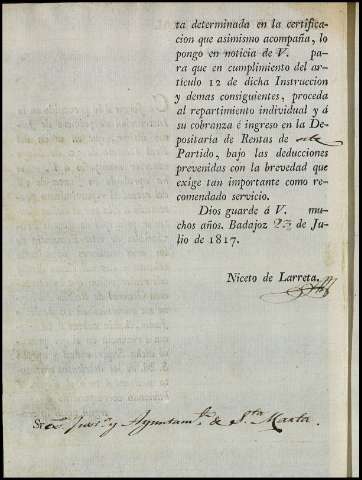 ta determinada en la certifica-
cion que asimismo acompaña, lo
pongo en noticia de V. pa-
ra que en cumplimiento del ar-
tículo 12 de dicha Instruccion
y demas consiguientes, proceda
al repartimiento individual y á
su cobranza é ingreso en la De-
positaria de Rentas de este
Partido, bajo las deducciones
prevenidas con la brevedad que
exige tan importante como re-
comendado servicio.
Dios guarde á V. mu-
chos años. Badajoz 23 de Ju-
lio de 1817.
Niceto de Larreta.
Sres. Just.ª y Ayuntam.to de S.ta Marta.